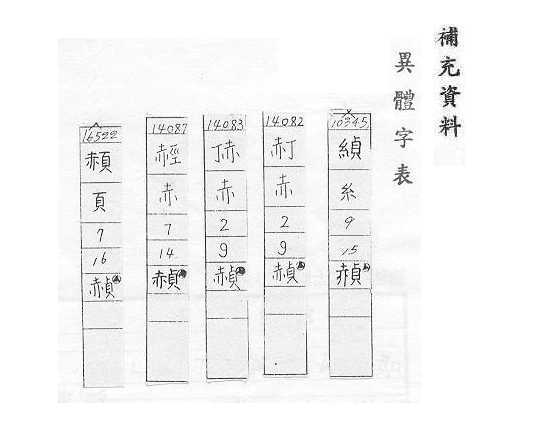 補充資料
異體字表
10345
緽
糸
9
15
赬
14082
赤丁
赤
2
9
赬
14083
丁赤
赤
2
9
赬
14087
經
赤
7
14
赬
16522
頳
頁
7
16
赬